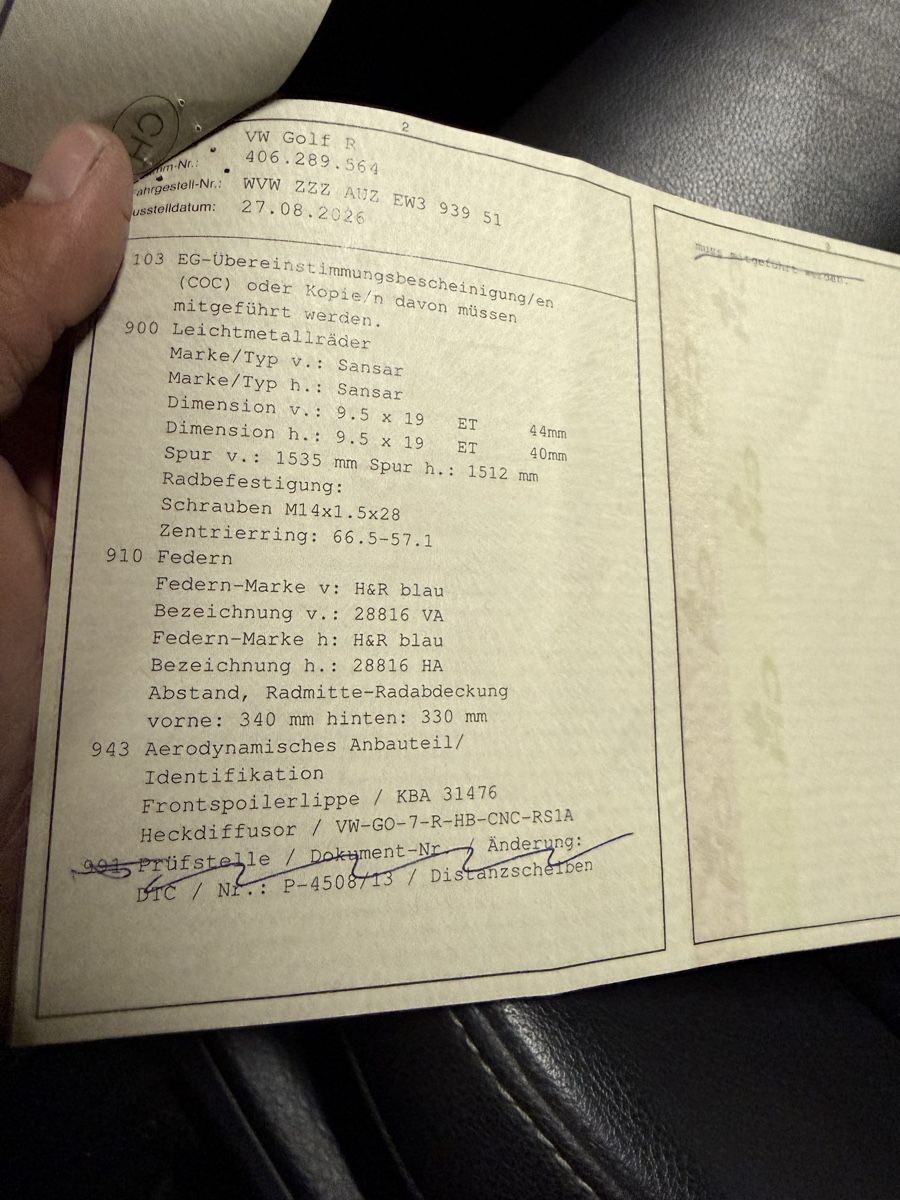 CH
2
VW Golf R
mm-Nr.: 406.289.564
ahrgestell-Nr.: WVW ZZZ AUZ EW3 939 51
usstelldatum: 27.08.2026
103 EG-Übereinstimmungsbescheinigung/en
(COC) oder Kopie/n davon müssen
mitgeführt werden.
900 Leichtmetallräder
Marke/Typ v.: Sansar
Marke/Typ h.: Sansar
Dimension v.: 9.5 x 19 ET 44mm
Dimension h.: 9.5 x 19 ET 40mm
Spur v.: 1535 mm Spur h.: 1512 mm
Radbefestigung:
Schrauben M14x1.5x28
Zentrierring: 66.5-57.1
910 Federn
Federn-Marke v: H&R blau
Bezeichnung v.: 28816 VA
Federn-Marke h: H&R blau
Bezeichnung h.: 28816 HA
Abstand, Radmitte-Radabdeckung
vorne: 340 mm hinten: 330 mm
943 Aerodynamisches Anbauteil/
Identifikation
Frontspoilerlippe / KBA 31476
Heckdiffusor / VW-GO-7-R-HB-CNC-RS1A
991 Prüfstelle / Dokument-Nr. / Änderung:
DTC / Nr.: P-4508/13 / Distanzscheiben
3
muss mitgeführt werden.